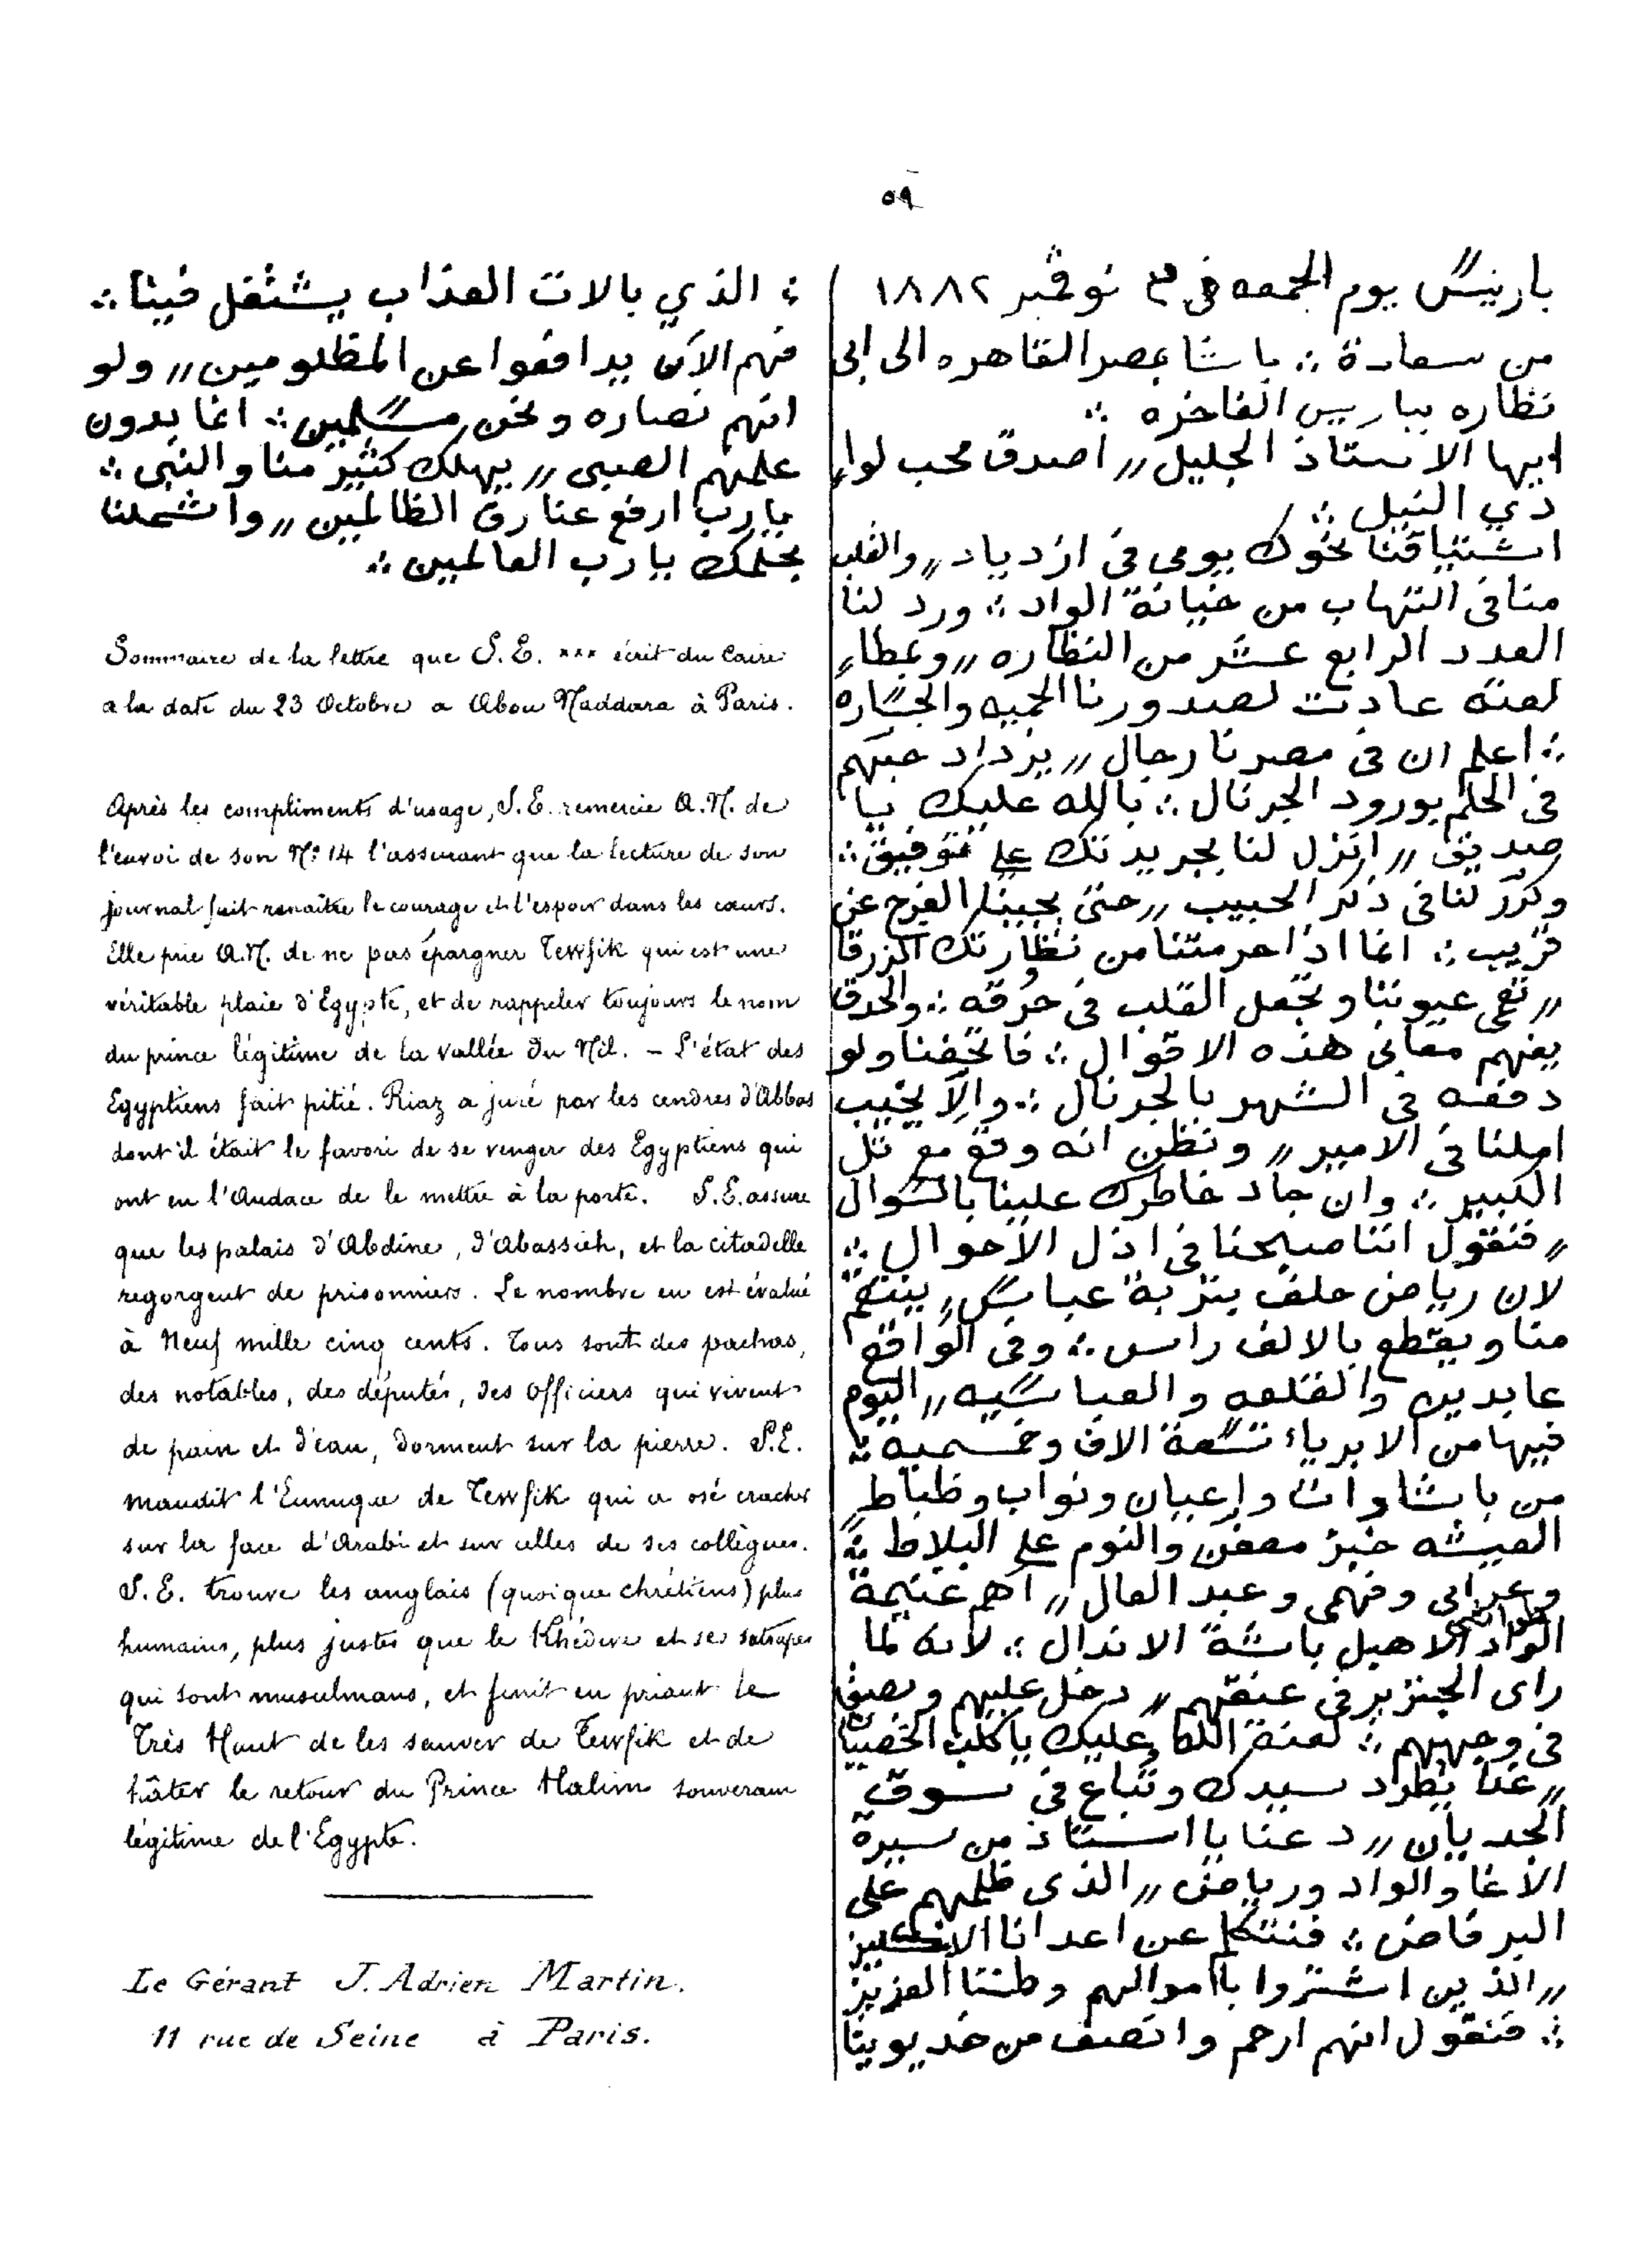 ٥٩
باريس يوم الجمعه في ٣ نوڤمبر ١٨٨٢
من سعادة ∴ باشا بمصر القاهره الى ابي
نظاره بباريس الفاخره ∴
ايها الاستاذ الجليل ،، اصدق محب لوادي
دي النيل ∴
اشتياقنا نحوك يومي في ازدياد ،، والقلب
منا في التهاب من خيانة الواد ∴ ورد لنا
العدد الرابع عشر من النظاره ،، وعطاء
لعنه عادت لصدورنا الحميه والجساره
∴ اعلم ان في مصرنا رجال ،، يزداد حبهم
في الحلم بورود الجرنال ∴ بالله عليك يا
صديقي ،، انزل لنا بجريدتك على توفيق ∴
وكرّر لنا في ذكر الحبيب ،، حتى يجيبنا الفرج عن
قريب ∴ انما اذا حرمتنا من نظارتك الزرقا
،، تعمى عيوننا وتجعل القلب في حرقه ∴ والحدق
يفهم معاني هذه الاقوال ∴ فاتحفنا ولو
دفعه في الشهر بالجرنال ∴ والّا يخيب
املنا في الامير ،، ونظن انه وقع مع تل
الكبير ∴ وان جاد خاطرك علينا بالسوال
،، فنقول اننا صبحنا في اذل الاحوال ∴
لان رياض حلف بتربة عباس ،، ينتقم
منا ويقطع بالالف راس ∴ وفي الواقع
عابدين والقلعه والعباسيه ،، اليوم
فيها من الابرياء تسعة الاف وخمسميه ∴
من باشاوات واعيان ونواب وظباط
العيشه خبز معفن والنوم على البلاط ∴
وعرابي وفهمي وعبد العال ،، اهم غنيمة
طواشي
الواد الاهبل باشة الاندال ∴ لانه لما
راى الجنزير في عنقهم ،، دخل عليهم وبصق
في وجههم ∴ لعنة الله عليك يا كلب الخصيان
،، غدا يطرد سيدك وتباع في سوق
الجديان ،، دعنا يا استاذ من سيرة
الاغا والواد ورياض ،، الذي ظلمهم على
البر فاض ∴ فنتكلم عن اعدانا الانكليز
،، الذين اشتروا باموالهم وطننا العزيز
∴ فنقول انهم ارحم وانصف من خديوينا
∴ الذي بالات العذاب يشتغل فينا ∴
فهم الآن يدافعوا عن المظلومين ،، ولو
انهم نصاره ونحن مسلمين ∴ انما بدون
علمهم الصبي ،، يهلك كثير منا والنبي ∴
يا رب ارفع عنا رق الظالمين ،، واشملنا
بحلمك يا رب العالمين ∴
Sommaire de la lettre que S.E. *** écrit du Caire
a la date du 23 Octobre a Abou Naddara à Paris.
Après les compliments d'usage, S.E. remercie A.N. de
l'envoi de son N° 14 l'assurant que la lecture de son
journal fait renaître le courage et l'espoir dans les cœurs.
Elle prie A.N. de ne pas épargner Tewfik qui est une
véritable plaie d'Egypte, et de rappeler toujours le nom
du prince légitime de la vallée du Nil. – L'état des
Egyptiens fait pitié. Riaz a juré par les cendres d'Abbas
dont il était le favori de se venger des Egyptiens qui
ont eu l'Audace de le mettre à la porte. S.E. assure
que les palais d'Abdine, d'Abassieh, et la citadelle
regorgent de prisonniers. Le nombre en est évalué
à Neuf mille cinq cents. Tous sont des pachas,
des notables, des députés, des officiers qui vivent
de pain et d'eau, dorment sur la pierre. S.E.
maudit l'Eunuque de Tewfik qui a osé cracher
sur la face d'Arabi et sur celles de ses collègues.
S.E. trouve les anglais (quoique chrétiens) plus
humains, plus justes que le Khédive et ses satrapes
qui sont musulmans, et finit en priant le
Très Haut de les sauver de Tewfik et de
hâter le retour du Prince Halim souverain
légitime de l'Egypte.
Le Gérant J. Adrien Martin.
11 rue de Seine à Paris.